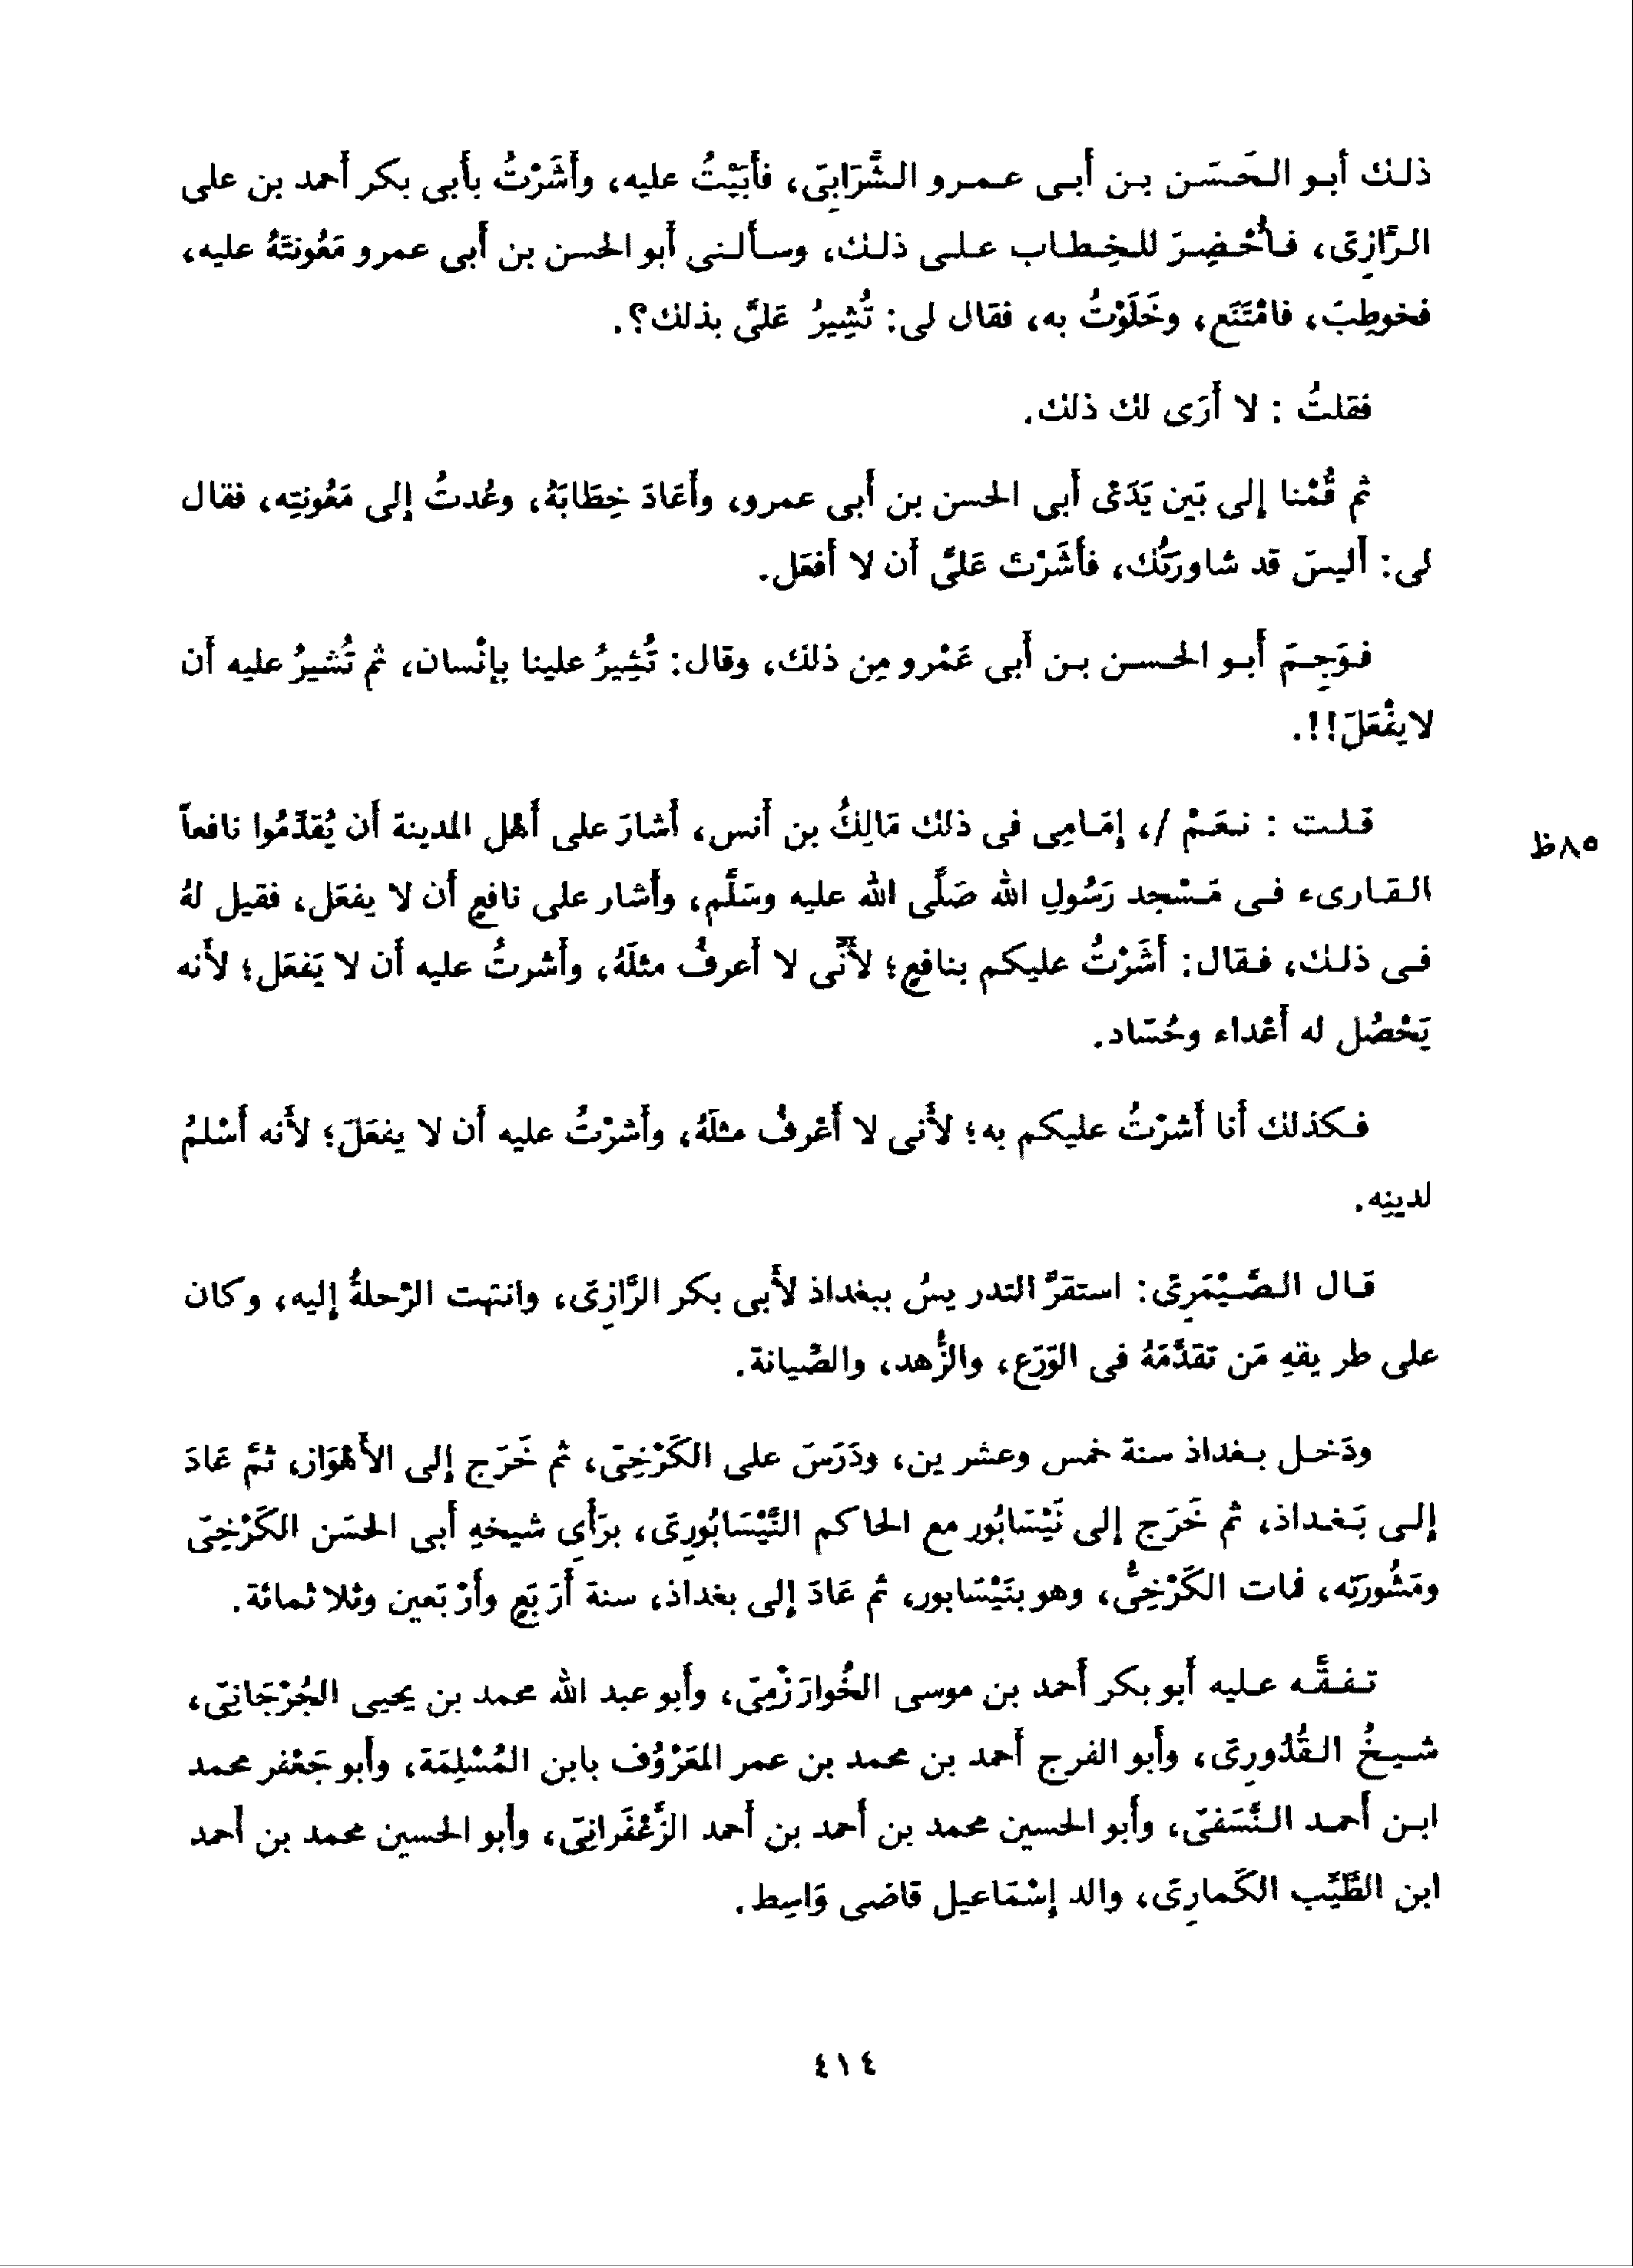 ذلك أبو الحَسَن بن أبى عمرو الشَّرَابِىّ، فأبَيْتُ عليه، وأشَرْتُ بأبى بكر أحمد بن على
الرَّازِىّ، فأُحْضِرَ للخِطاب على ذلك، وسألنى أبو الحسن بن أبى عمرو مَعُونتَهُ عليه،
فخوطِبَ، فامْتَنَع، وخَلَوْتُ به، فقال لى: تُشِيرُ عَلىَّ بذلك؟.
فقلتُ : لا أرَى لك ذلك.
ثم قُمْنا إلى بَين يَدَىْ أبى الحسن بن أبى عمرو، وأعَادَ خِطَابَهُ، وعُدتُ إلى مَعُونتِه، فقال
لى: أليسَ قد شاورَتُك، فأشَرْتَ عَلىَّ أن لا أفعَل.
فوَجِمَ أبو الحسن بن أبى عَمْرو مِن ذلك، وقال: تُشِيرُ علينا بإنْسان، ثم تُشيرُ عليه أن
لايفْعَلَ!!.
قلت : نعَمْ /، إمَامِى فى ذلك مَالِكُ بن أنس، أشارَ على أهْل المدينة أن يُقدِّمُوا نافعاً
القارىء فى مَسْجد رَسُولِ الله صَلَّى الله عليه وسَلَّم، وأشار على نافعٍ أن لا يفعَل، فقيل لهُ
فى ذلك، فقال: أشَرْتُ عليكم بنافعٍ؛ لأنِّى لا أعرفُ مثلَهُ، وأشرتُ عليه أن لا يَفعَل؛ لأنه
يَحْصُل له أعْداء وحُسَّاد.
فكذلك أنا أشرْتُ عليكم به؛ لأنى لا أعْرفُ مثلَهُ، وأشرْتُ عليه أن لا يفعَلَ؛ لأنه أسْلمُ
لدينِه.
قال الصَّيْمَرِىّ: استقرَّ التدريسُ ببغداذ لأبى بكر الرَّازِىّ، وانتهت الرّحلةُ إليه، وكان
على طريقهِ مَن تقدَّمَهُ فى الوَرَع، والزُّهد، والصِّيانة.
ودَخل بغداذ سنة خمس وعشرين، ودَرَسَ على الكَرْخِىّ، ثم خَرَج إلى الأهْوَاز، ثمَّ عَادَ
إلى بَغداذ، ثم خَرَج إلى نَيْسَابُور مع الحاكم النَّيْسَابُورِىّ، برَأىِ شيخهِ أبى الحسَن الكَرْخِىّ
ومَشُورَتِه، فمات الكَرْخِىُّ، وهو بنَيْسَابور، ثم عَادَ إلى بغداذ، سنة أرَبَعٍ وأرْبَعين وثلاثمائة.
تفقَّه عليه أبو بكر أحمد بن موسى الخُوارَزْمِىّ، وأبو عبد الله محمد بن يحيى الجُرْجَانِىّ،
شيخُ القُدُورِىّ، وأبو الفرج أحمد بن محمد بن عمر المَعَرْوُف بابن المُسْلِمَة، وأبو جَعْفر محمد
ابن أحمد النَّسَفىّ، وأبو الحسين محمد بن أحمد بن أحمد الزَّعْفَرانِىّ، وأبو الحسين محمد بن أحمد
ابن الطَّيِّب الكَمارِىّ، والد إسْمَاعيل قاضى وَاسِط.
٨٥ظ
٤١٤